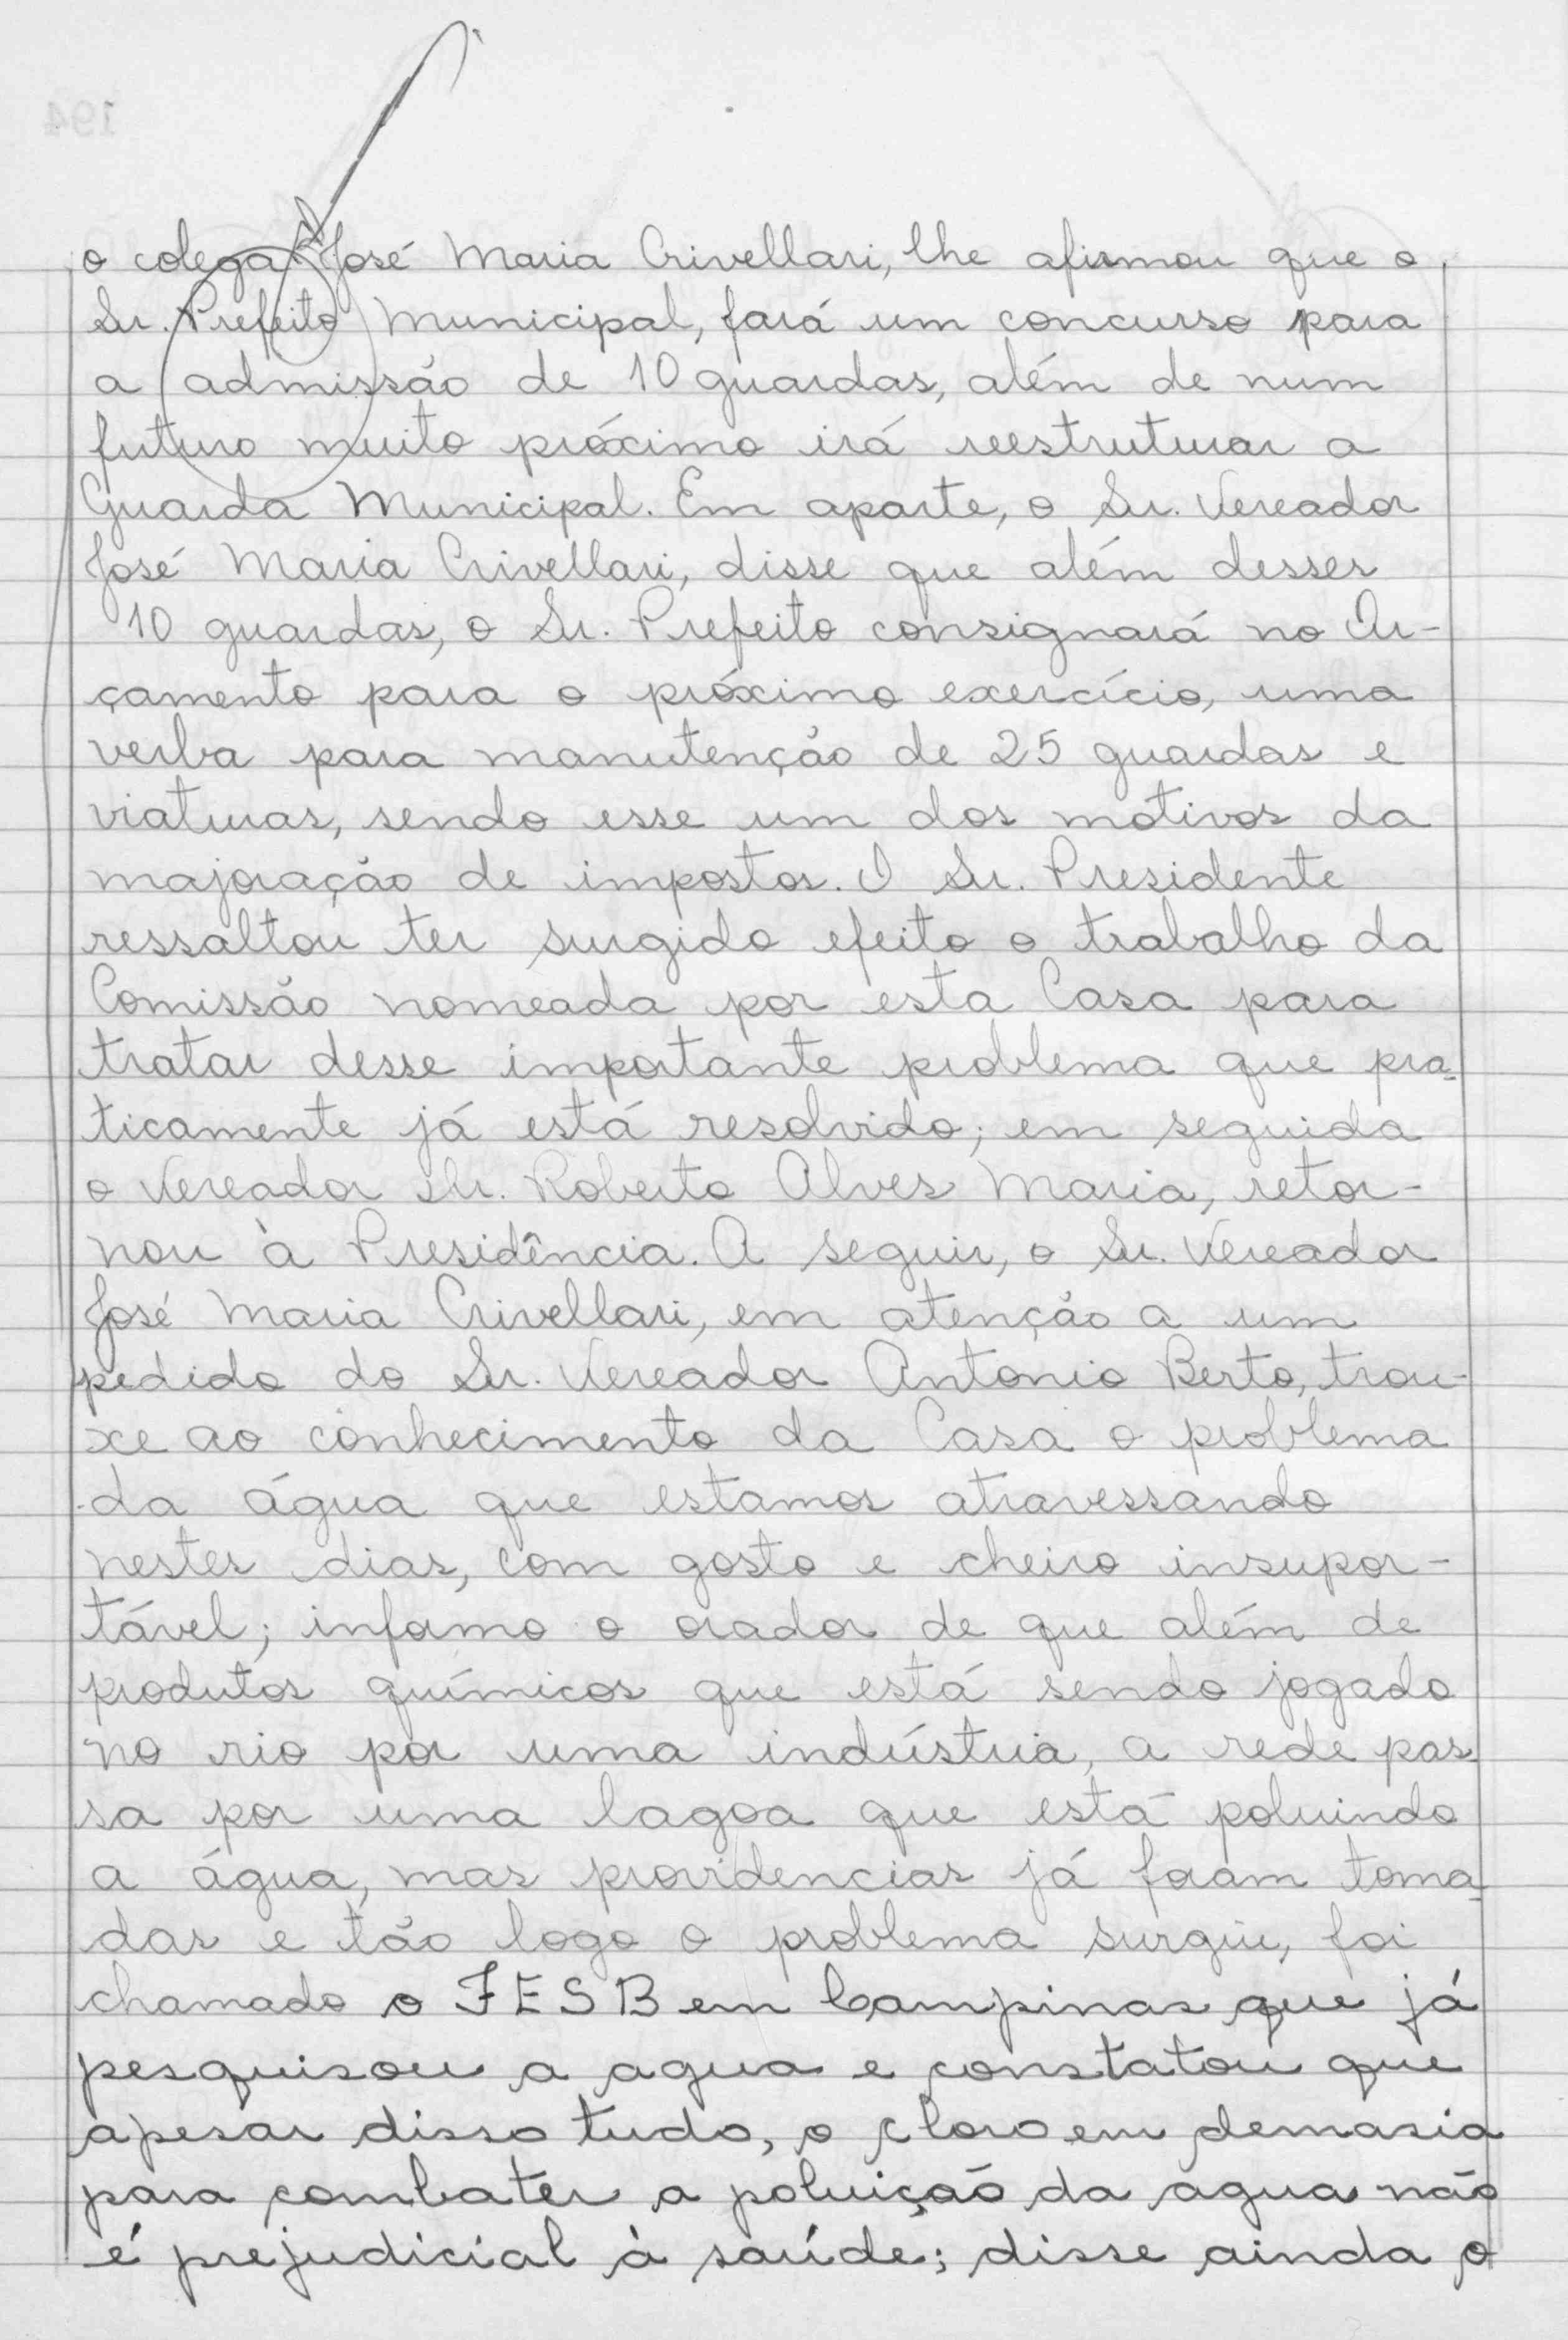 o colega José Maria Crivellari, lhe afirmou que o
Sr. Prefeito Municipal, fará um concurso para
a admissão de 10 guardas, além de num
futuro muito próximo irá reestruturar a
Guarda Municipal. Em aparte, o Sr. Vereador
José Maria Crivellari, disse que além desses
10 guardas, o Sr. Prefeito consignará no Or-
çamento para o próximo exercício, uma
verba para manutenção de 25 guardas e
viaturas, sendo esse um dos motivos da
majoração de impostos. O Sr. Presidente
ressaltou ter surgido efeito o trabalho da
Comissão nomeada por esta Casa para
tratar desse importante problema que pra-
ticamente já está resolvido; em seguida
o Vereador Sr. Roberto Alves Maria, retor-
nou à Presidência. A seguir, o Sr. Vereador
José Maria Crivellari, em atenção a um
pedido do Sr. Vereador Antonio Berto, trou-
xe ao conhecimento da Casa o problema
da água que estamos atravessando
nestes dias, com gosto e cheiro insupor-
tável; informo o orador de que além de
produtos químicos que está sendo jogado
no rio por uma indústria, a rede pas-
sa por uma lagoa que está poluindo
a água, mas providencias já foram toma-
das e tão logo o problema surgiu, foi
chamado o FESB em Campinas que já
pesquisou a agua e constatou que
apesar disso tudo, o cloro em demasia
para combater a poluição da agua não
é prejudicial à saúde; disse ainda o